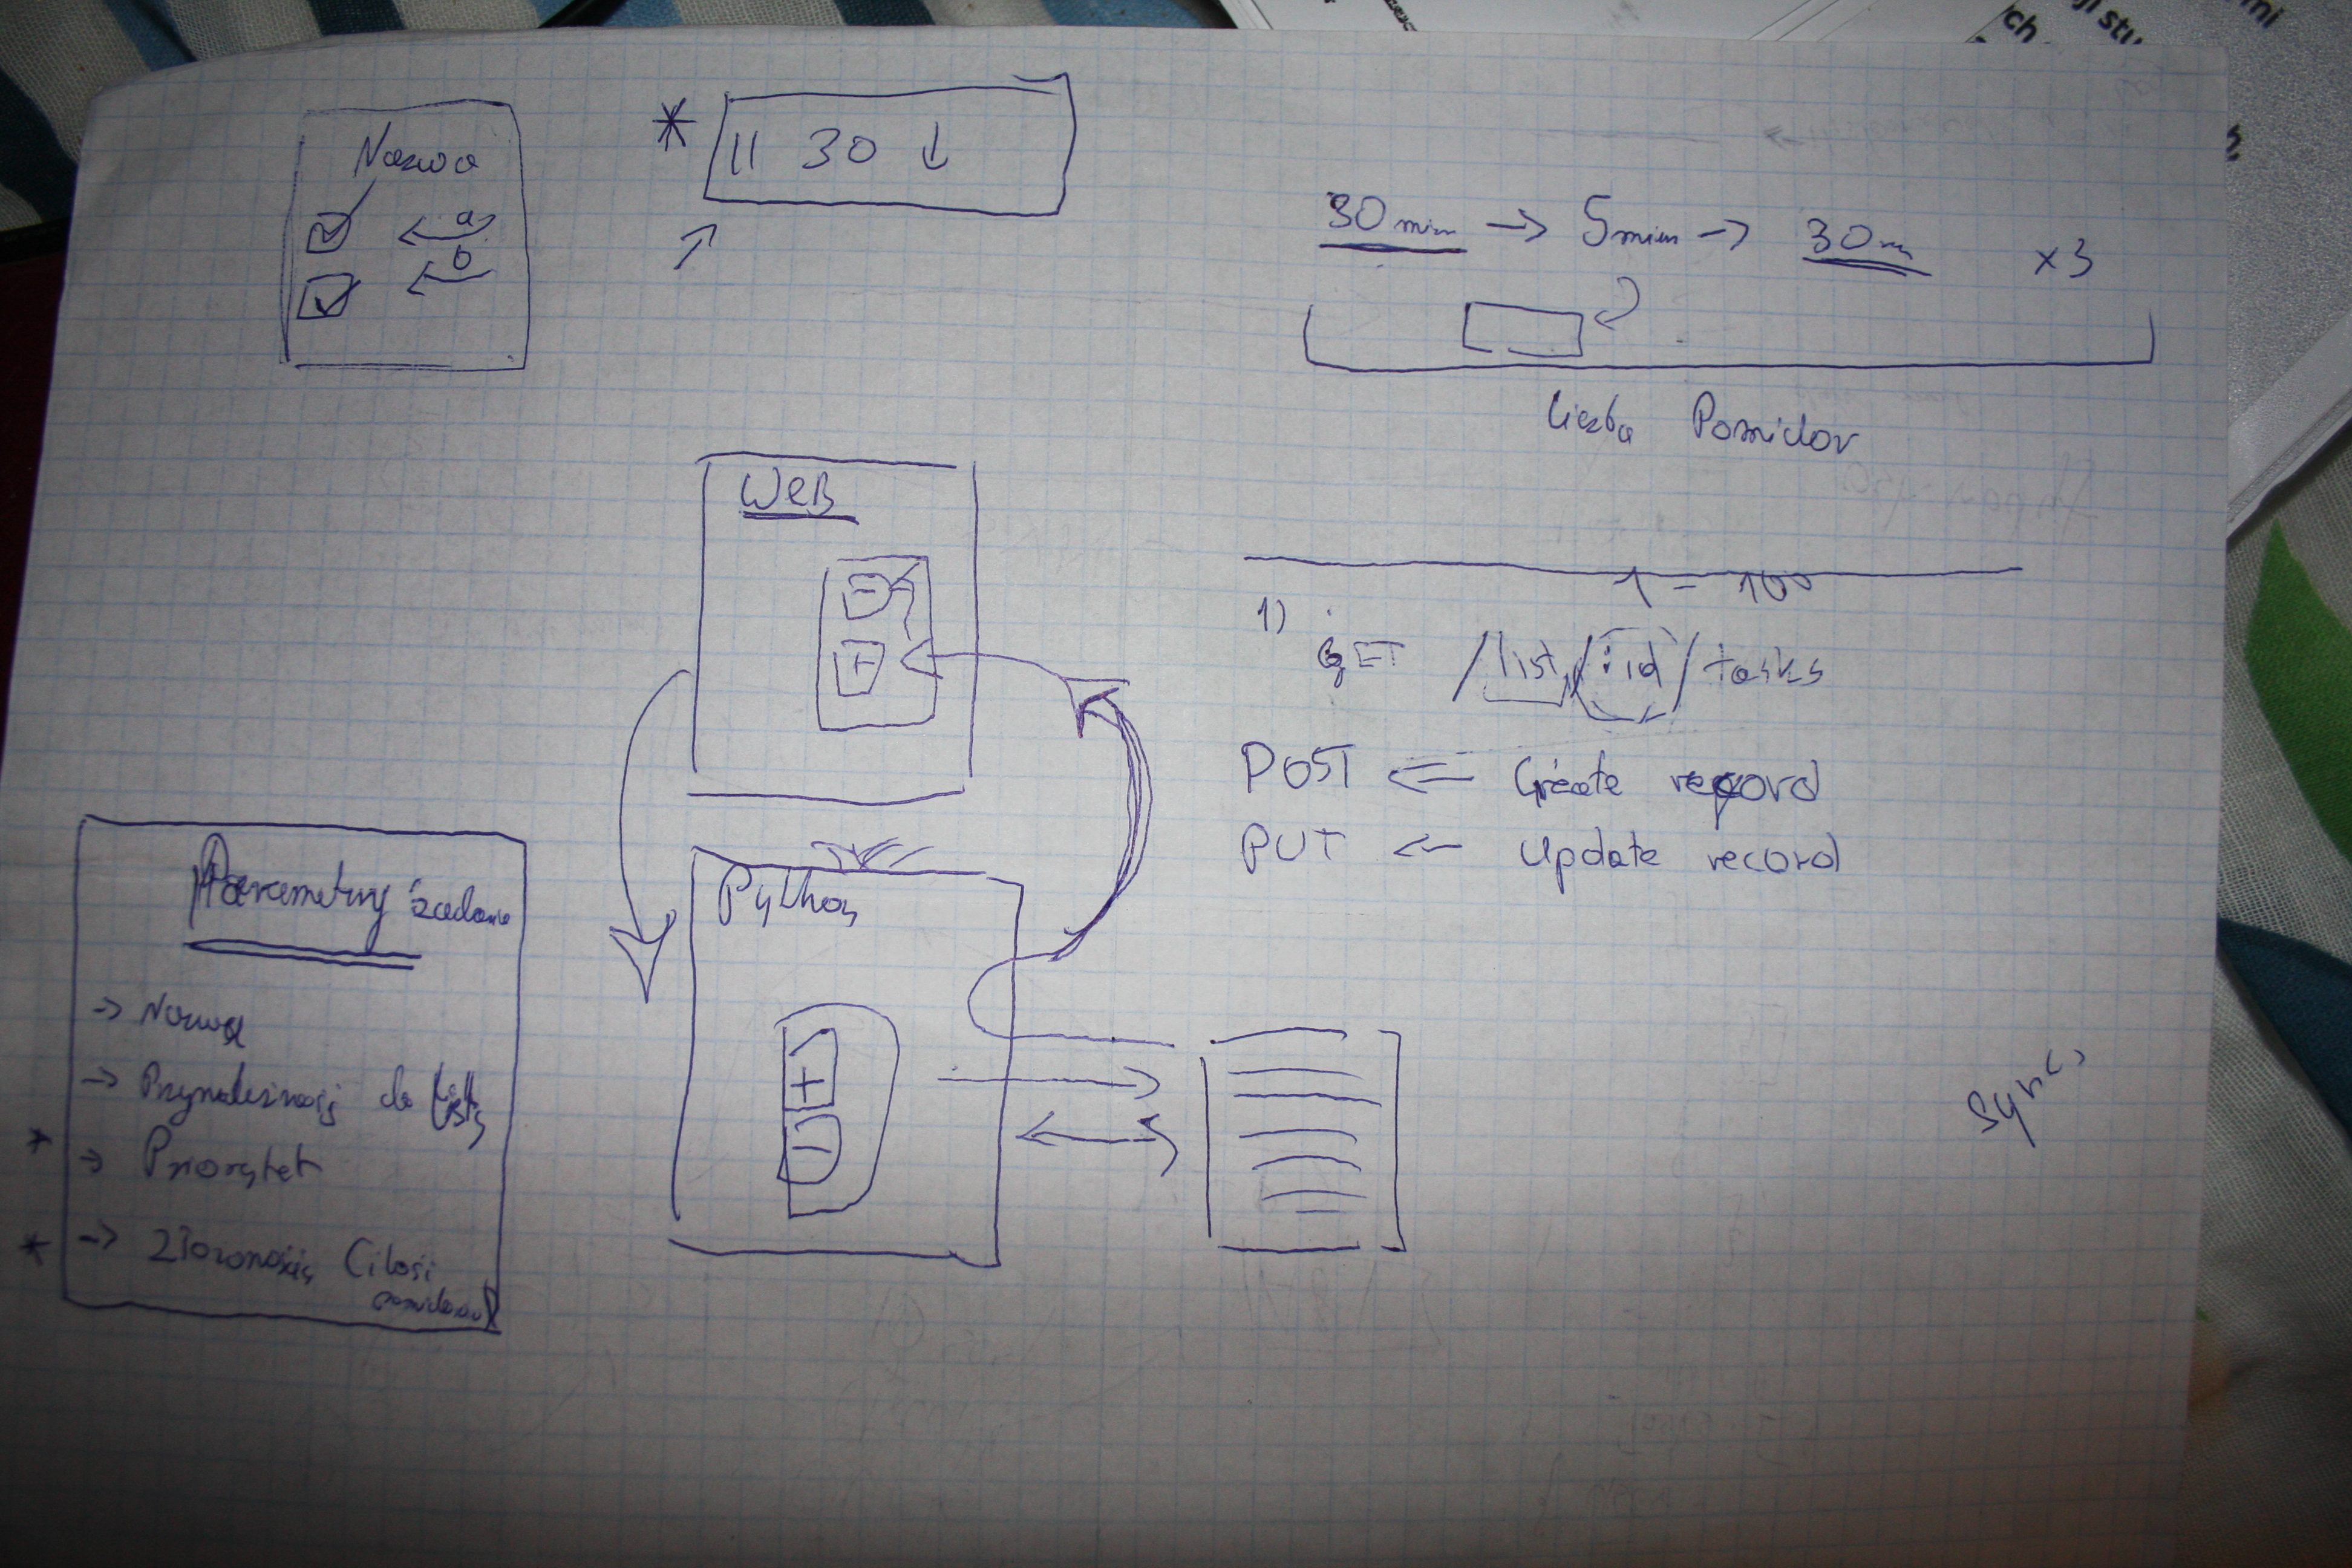 Nazwa
a
b
* || 30 ↓
30 min → 5 min → 30 m x3
liczba Pomidor
WEB
1 - 100
1) GET /list/:id/tasks
POST ← Create record
PUT ← Update record
Python
Parametry zadania
→ Nazwa
→ Przynależność do listy
* → Priorytet
* → Złożoność
Sync
ch
ji stu
mi